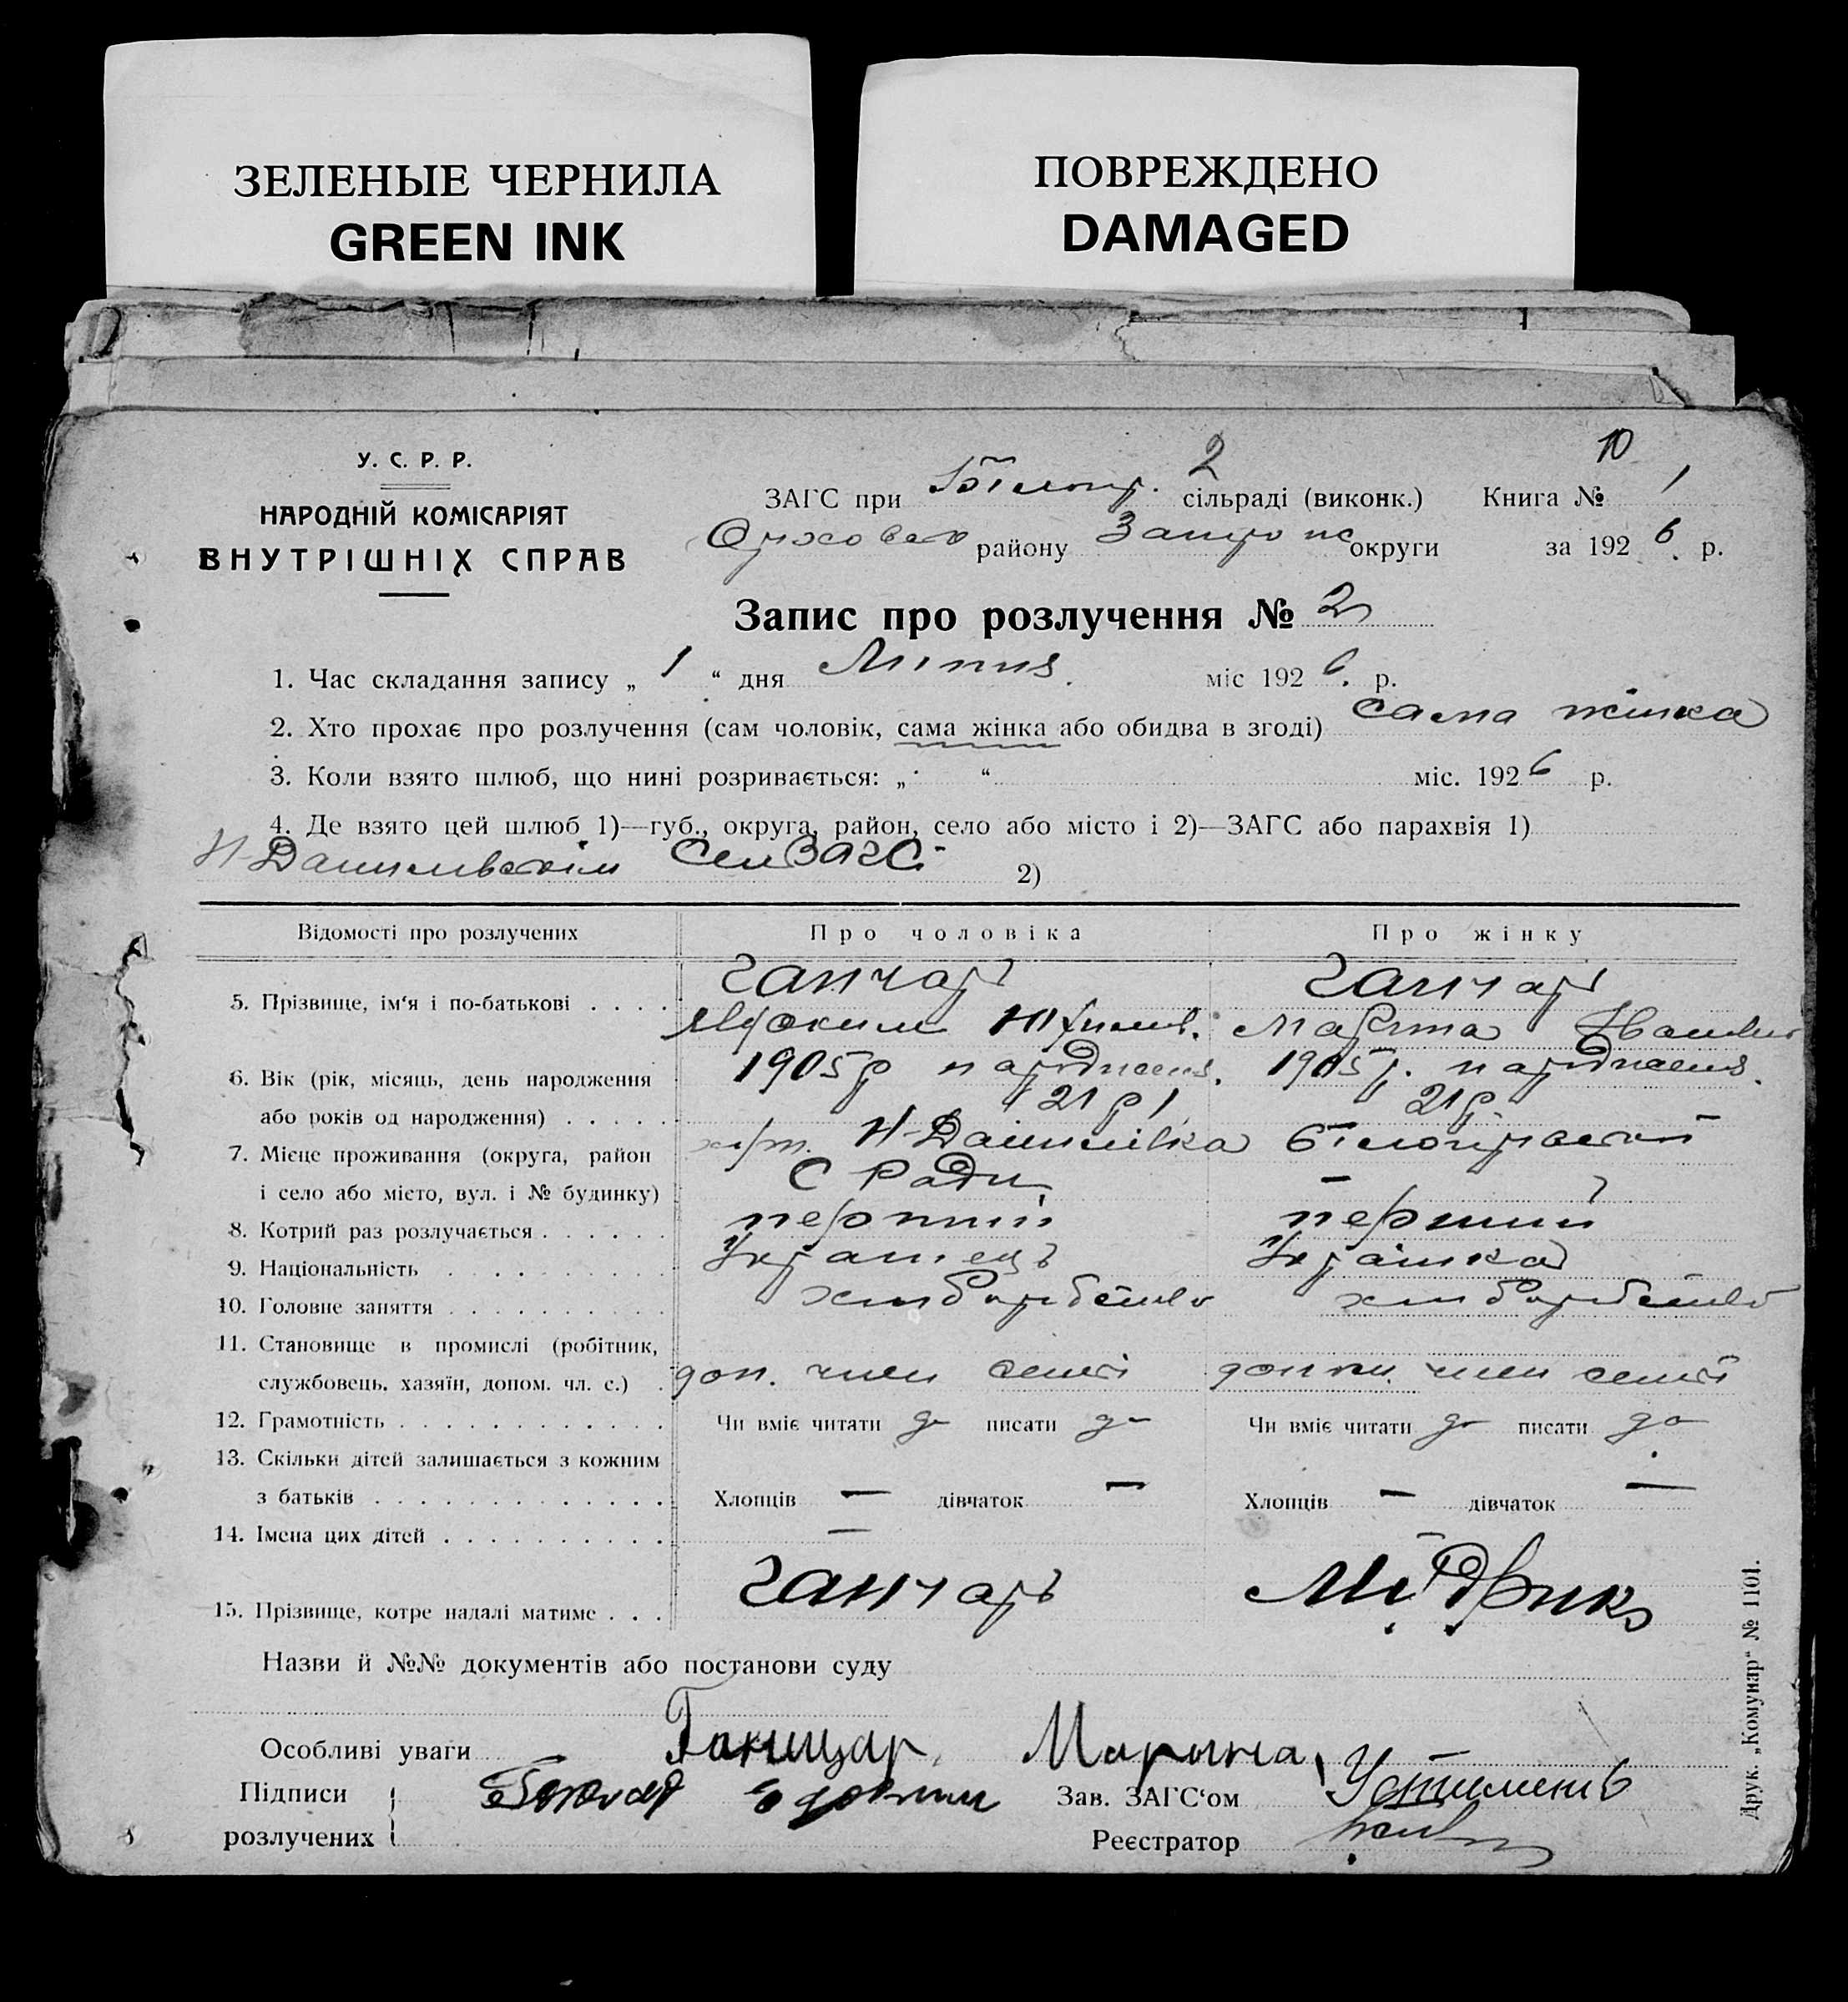 ЗЕЛЕНЫЕ ЧЕРНИЛА
GREEN INK
ПОВРЕЖДЕНО
DAMAGED
У. С. Р. Р.
НАРОДНІЙ КОМІСАРІЯТ
ВНУТРІШНІХ СПРАВ
10
ЗАГС при 2 сільраді (виконк.) Книга № 1
району округи за 192 6 р.
Запис про розлучення № 2
1. Час складання запису „ 1 “ дня Липня міс 192 6. р.
2. Хто прохає про розлучення (сам чоловік, сама жінка або обидва в згоді) сама жінка
3. Коли взято шлюб, що нині розривається: „ “ міс. 192 6 р.
4. Де взято цей шлюб 1)—губ., округа, район, село або місто і 2)—ЗАГС або парахвія 1)
Н-Данилівськім 2)
Відомості про розлучених Про чоловіка Про жінку
5. Прізвище, ім‘я і по-батькові . . . . Ганчарь Ганчарь
6. Вік (рік, місяць, день народження 1905 р народжен. 1905 р. народження.
або років од народження) . . . . . 21 р 21 р.
7. Місце проживання (округа, район Н-Данилівка
і село або місто, вул. і № будинку) С Ради
8. Котрий раз розлучається . . . . . . перший перший
9. Національність . . . . . . . Українець Українка
10. Головне заняття . . . . . . . . . . хліборобство хліборобство
11. Становище в промислі (робітник,
службовець. хазяїн, допом. чл. с.) . доп. член семії допом. член семії
12. Грамотність . . . . . . . . . . . . Чи вміє читати да писати да Чи вміє читати да писати да
13. Скільки дітей залишається з кожним
з батьків . . . . . . . . . . . . . Хлопців — дівчаток — Хлопців — дівчаток —
14. Імена цих дітей . . . . . . . . . . —
15. Прізвище, котре надалі матиме . . . Ганчарь
Назви й №№ документів або постанови суду
Особливі уваги Ганщар Марина
Підписи Зав. ЗАГС‘ом Устименко
розлучених Реєстратор
Друк. „Комунар“ № 1101.